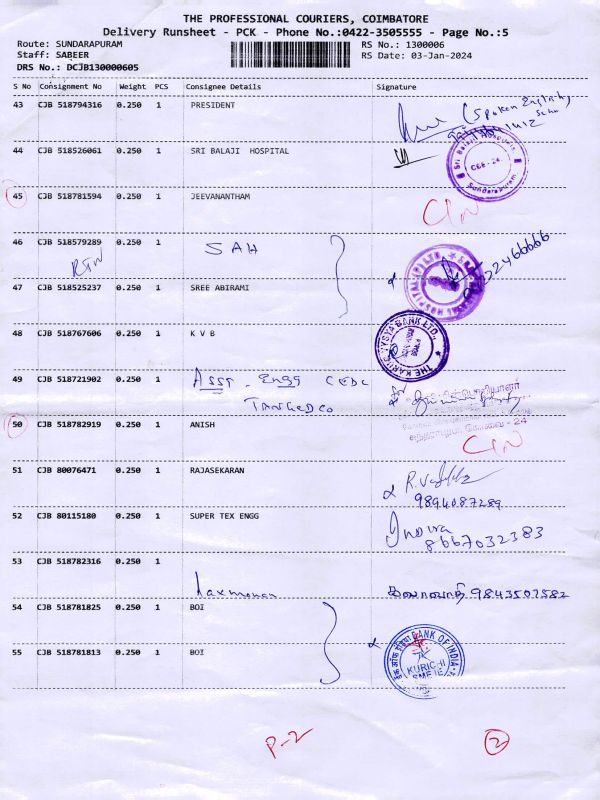 THE PROFESSIONAL COURIERS, COIMBATORE
Delivery Runsheet - PCK - Phone No.:0422-3505555 - Page No.:5
Route: SUNDARAPURAM RS No.: 1300006
Staff: SABEER RS Date: 03-Jan-2024
DRS No.: DCJB130000605
S No Consignment No Weight PCS Consignee Details Signature
43 CJB 518794316 0.250 1 PRESIDENT
(Spoken English
44 CJB 518526061 0.250 1 SRI BALAJI HOSPITAL
Sri Balaji Hospital
CBE-24
Sundarapuram
45 CJB 518781594 0.250 1 JEEVANANTHAM
46 CJB 518579289 0.250 1 SAH
47 CJB 518525237 0.250 1 SREE ABIRAMI
48 CJB 518767606 0.250 1 K V B
THE KARUR VYSYA BANK LTD.
49 CJB 518721902 0.250 1 Asst. Engg CEDC
TANGEDCO
50 CJB 518782919 0.250 1 ANISH
51 CJB 80076471 0.250 1 RAJASEKARAN
9894087289
52 CJB 80115180 0.250 1 SUPER TEX ENGG
Indira
8667032383
53 CJB 518782316 0.250 1 Laxmanan
கலாவதி 9843507582
54 CJB 518781825 0.250 1 BOI
55 CJB 518781813 0.250 1 BOI
BANK OF INDIA
KURICHI
P-2 2